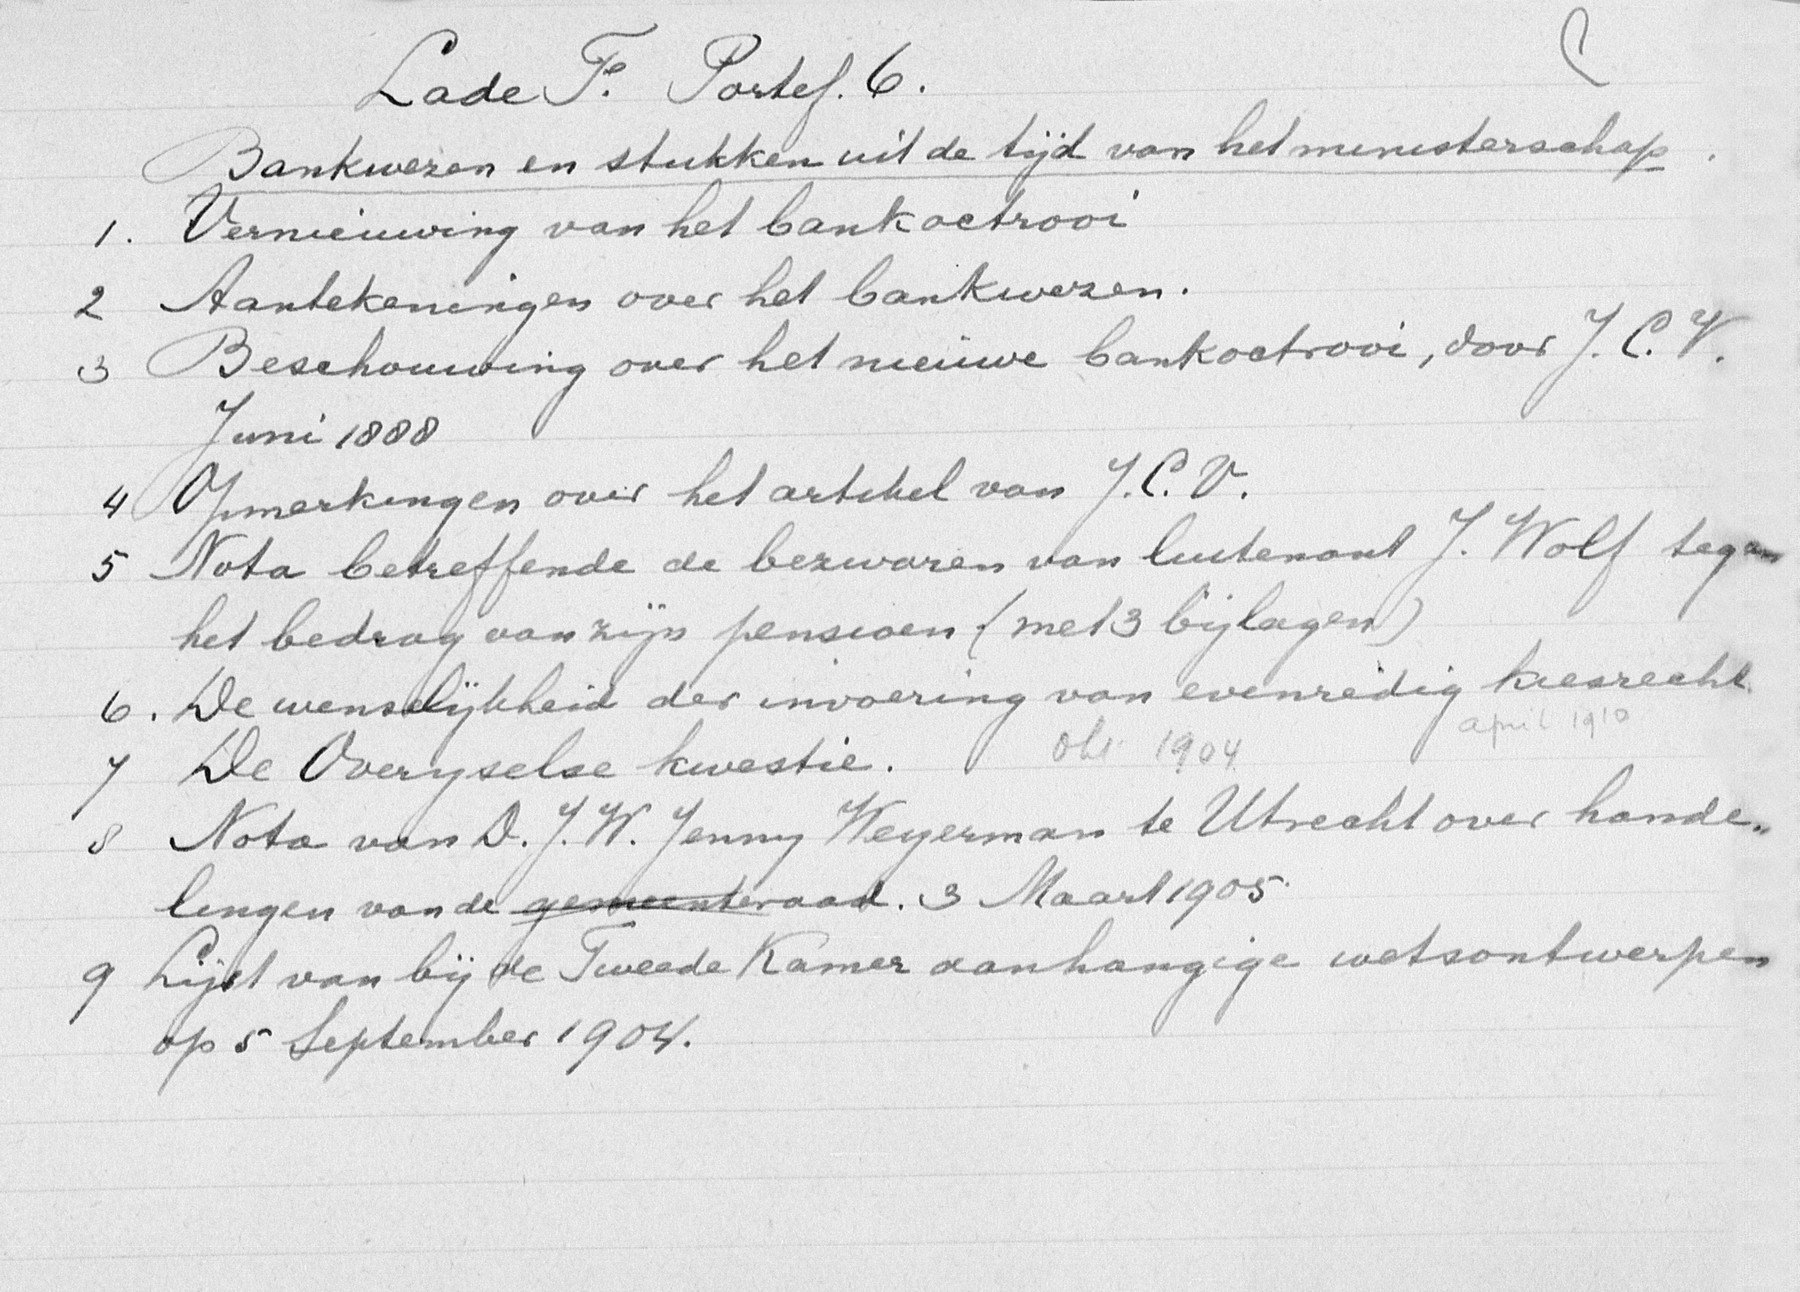 Lade F. Portef. 6.
Bankwezen en stukken uit de tijd van het ministerschap.
1. Vernieuwing van het bankoctrooi
2 Aantekeningen over het bankwezen.
3 Beschouwing over het nieuwe bankoctrooi, door J. C. V.
Juni 1888
4 Opmerkingen over het artikel van J. C. V.
5 Nota betreffende de bezwaren van luitenant J. Wolf tegen
het bedrag van zijn pensioen (met 3 bijlagen)
6. De wenselijkheid der invoering van evenredig kiesrecht.
april 1910
7 De Overijselse kwestie. okt. 1904
8 Nota van D. J. W. Jenny Weyerman te Utrecht over hande„
lingen van de gemeenteraad. 3 Maart 1905.
9 Lijst van bij de Tweede Kamer aanhangige wetsontwerpen
op 5 September 1904.